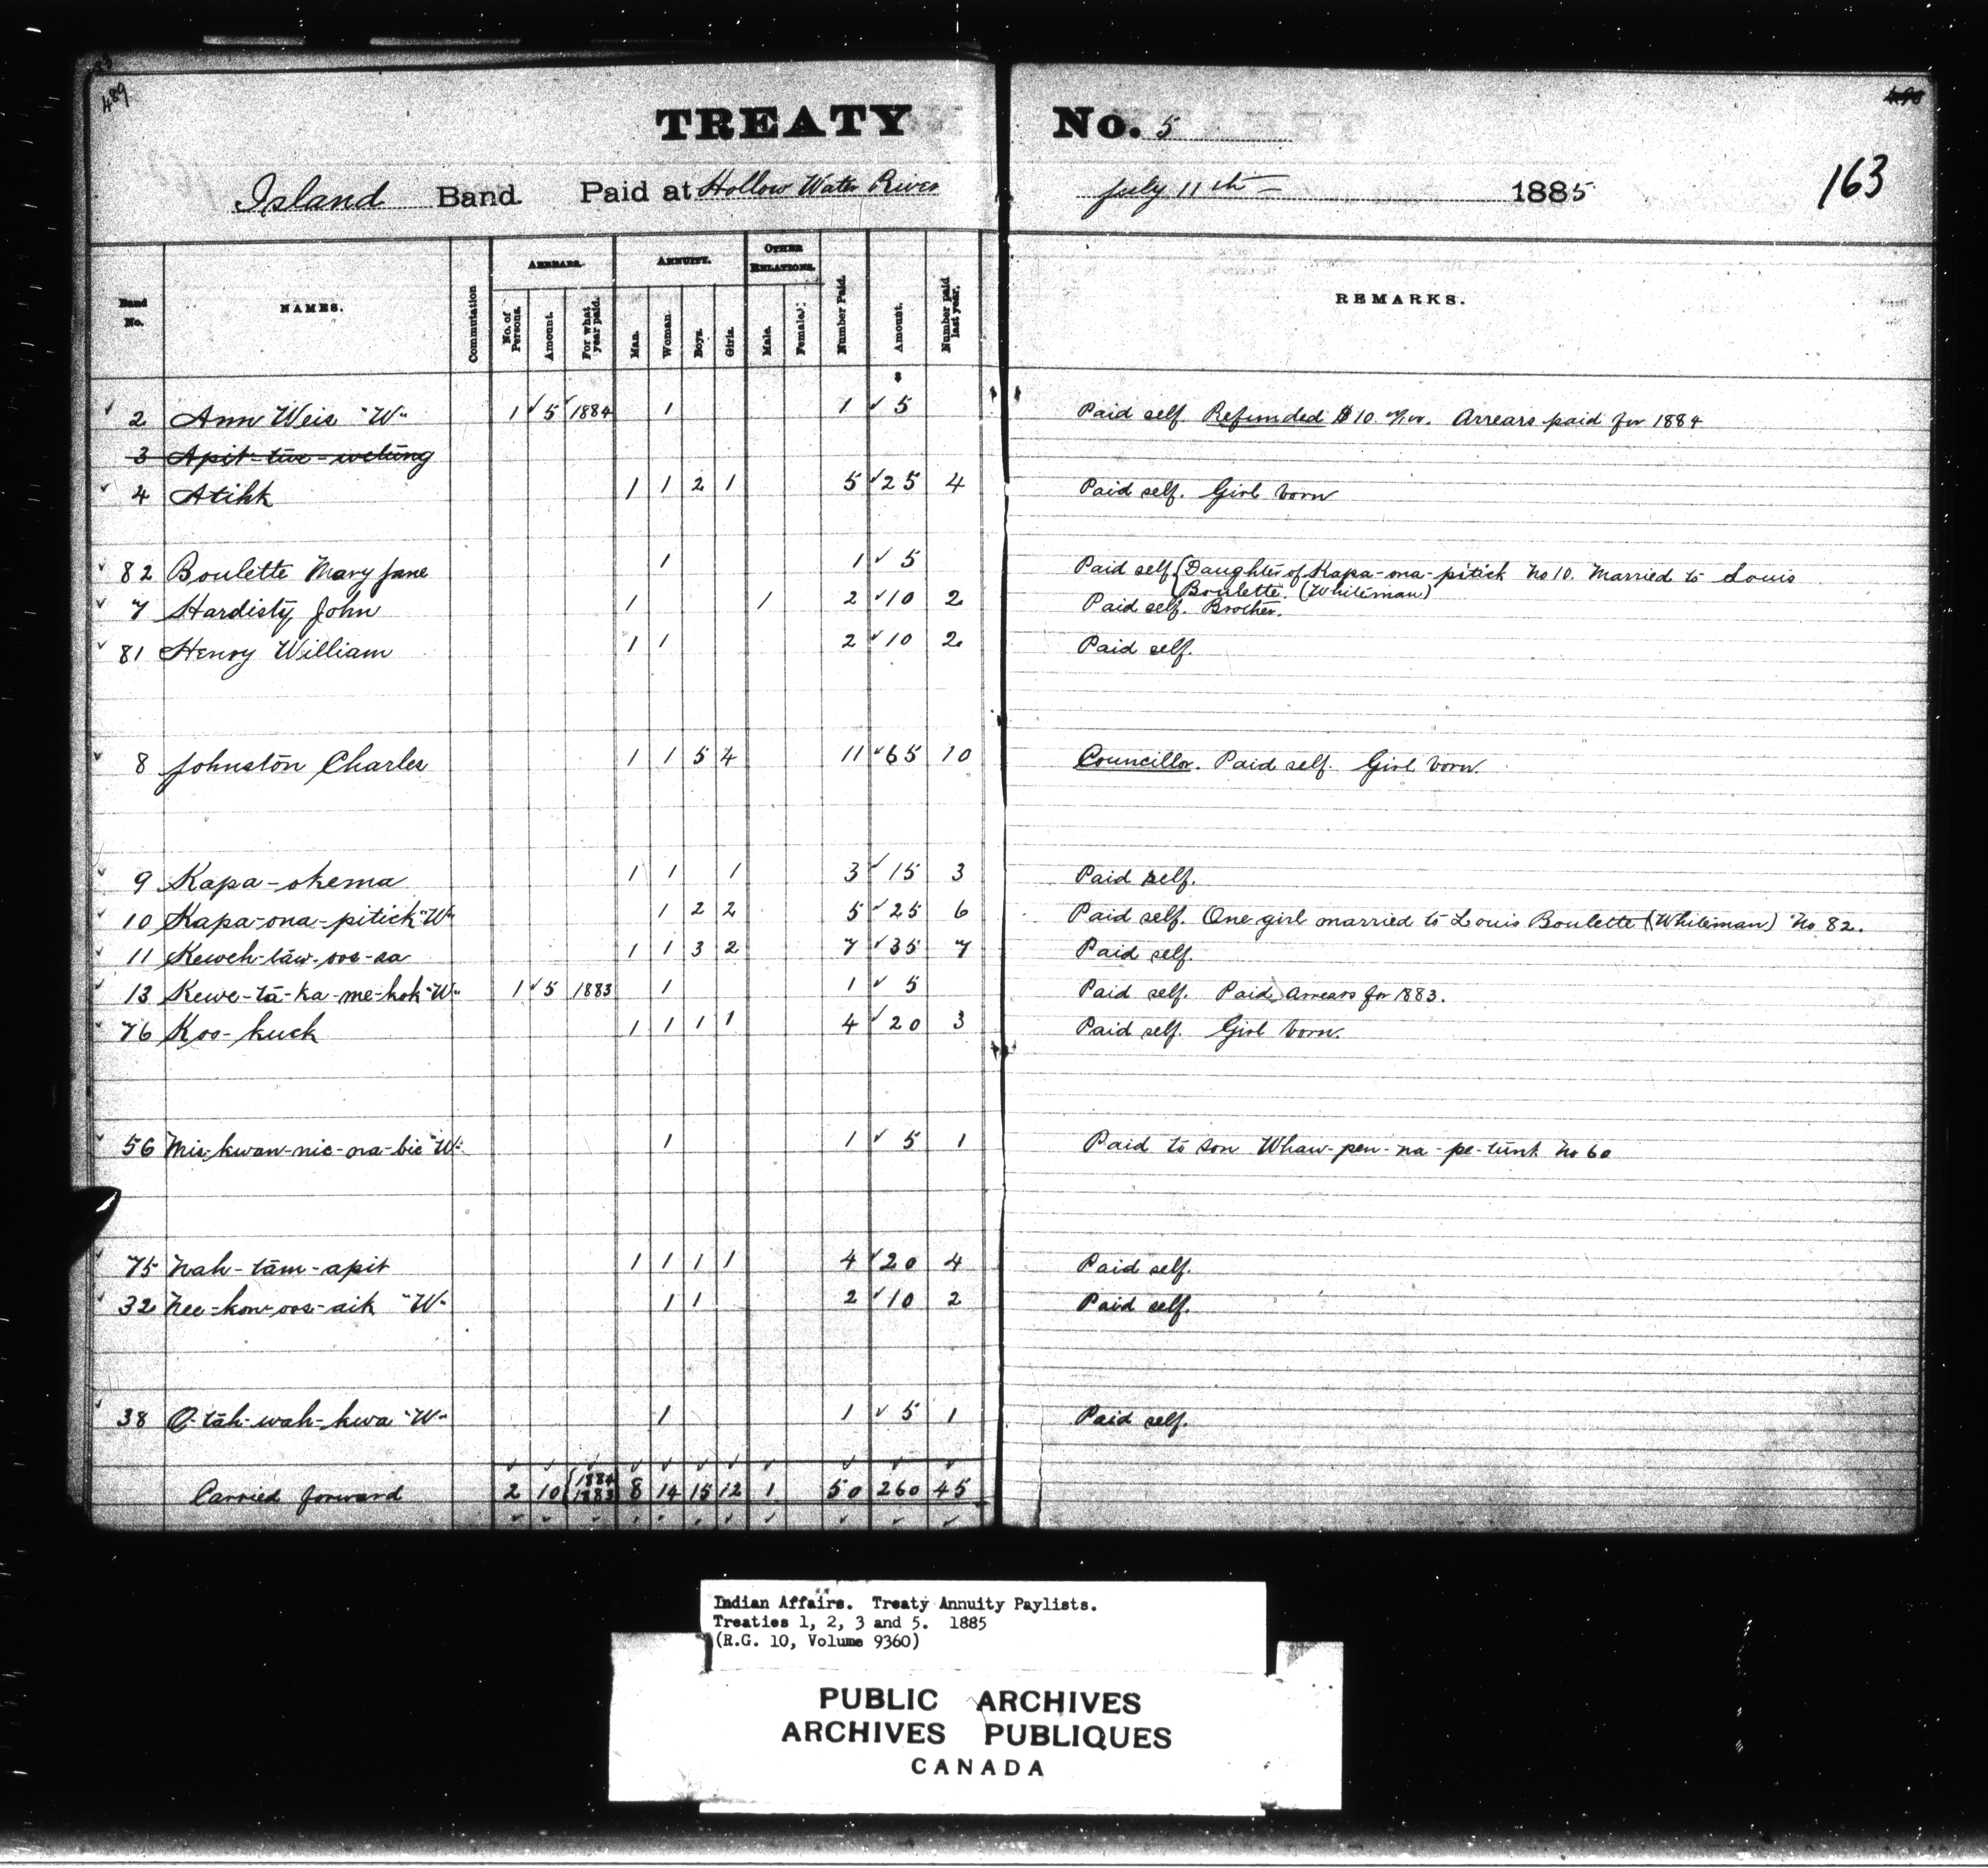 489
TREATY No. 5
163
Island Band. Paid at Hollow Water River July 11th 1885
Band No. NAMES. Commutation ARREARS. No. of Persons. Amount. For what year paid. ANNUITY. Man. Woman. Boys. Girls. OTHER RELATIONS. Male. Female. Number Paid. Amount. Number paid last year. REMARKS.
$
2 Ann Weis "W" 1 5 1884 1 1 5 Paid self. Refunded $10. Arrears paid for 1884
3
4 Atihk 1 1 2 1 5 25 4 Paid self. Girl born
82 Boulette Mary Jane 1 1 5 Paid self {Daughter of Kapa-ona-pitick No 10. Married to Louis
Boulette. (Whiteman)
7 Hardisty John 1 1 2 10 2 Paid self. Brother.
81 Henry William 1 1 2 10 2 Paid self.
8 Johnston Charles 1 1 5 4 11 65 10 Councillor. Paid self. Girl born.
9 Kapa-okema 1 1 1 3 15 3 Paid self.
10 Kapa-ona-pitick "W" 1 2 2 5 25 6 Paid self. One girl married to Louis Boulette (Whiteman) No 82.
11 Keweh-tāw-oos-sa 1 1 3 2 7 35 7 Paid self.
13 Kewe-tā-ka-me-kok "W" 1 5 1883 1 1 5 Paid self. Paid Arrears for 1883.
76 Koo-kuck 1 1 1 1 4 20 3 Paid self. Girl born.
56 Mis-kwan-nic-na-bic "W" 1 1 5 1 Paid to son Whaw-pen-na-pe-tunk No 60
75 Nah-tām-apit 1 1 1 1 4 20 4 Paid self.
32 Nee-kon-oos-aik "W" 1 1 2 10 2 Paid self.
38 O-tāh-wah-kwa "W" 1 1 5 1 Paid self.
Carried forward 2 10 {1884 1883 8 14 15 12 1 50 260 45
Indian Affairs. Treaty Annuity Paylists.
Treaties 1, 2, 3 and 5. 1885
(R.G. 10, Volume 9360)
PUBLIC ARCHIVES
ARCHIVES PUBLIQUES
CANADA